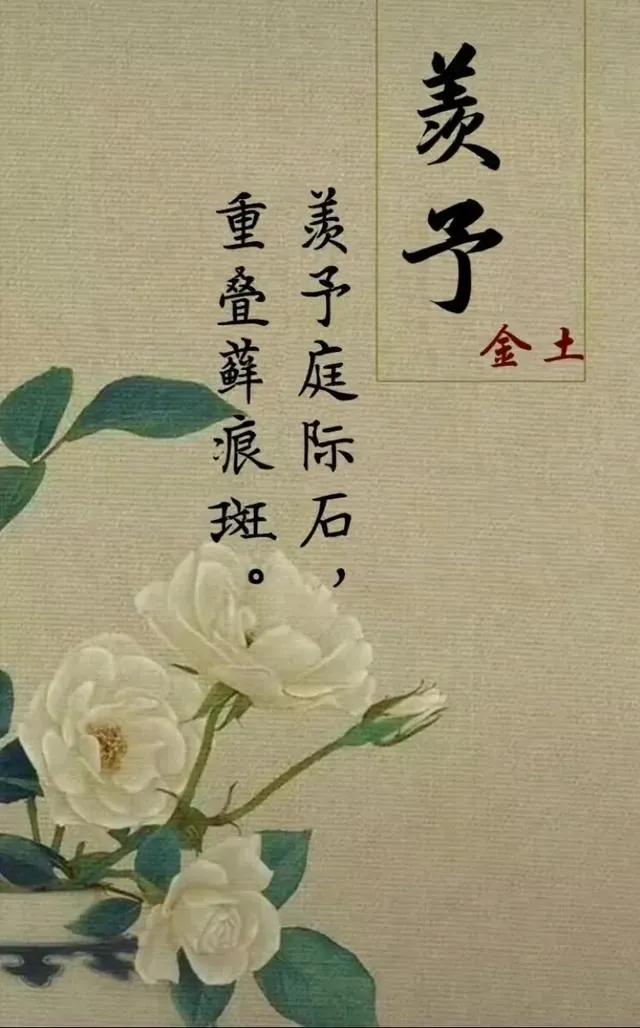 羡予
金土
羡予庭际石，
重叠藓痕斑。